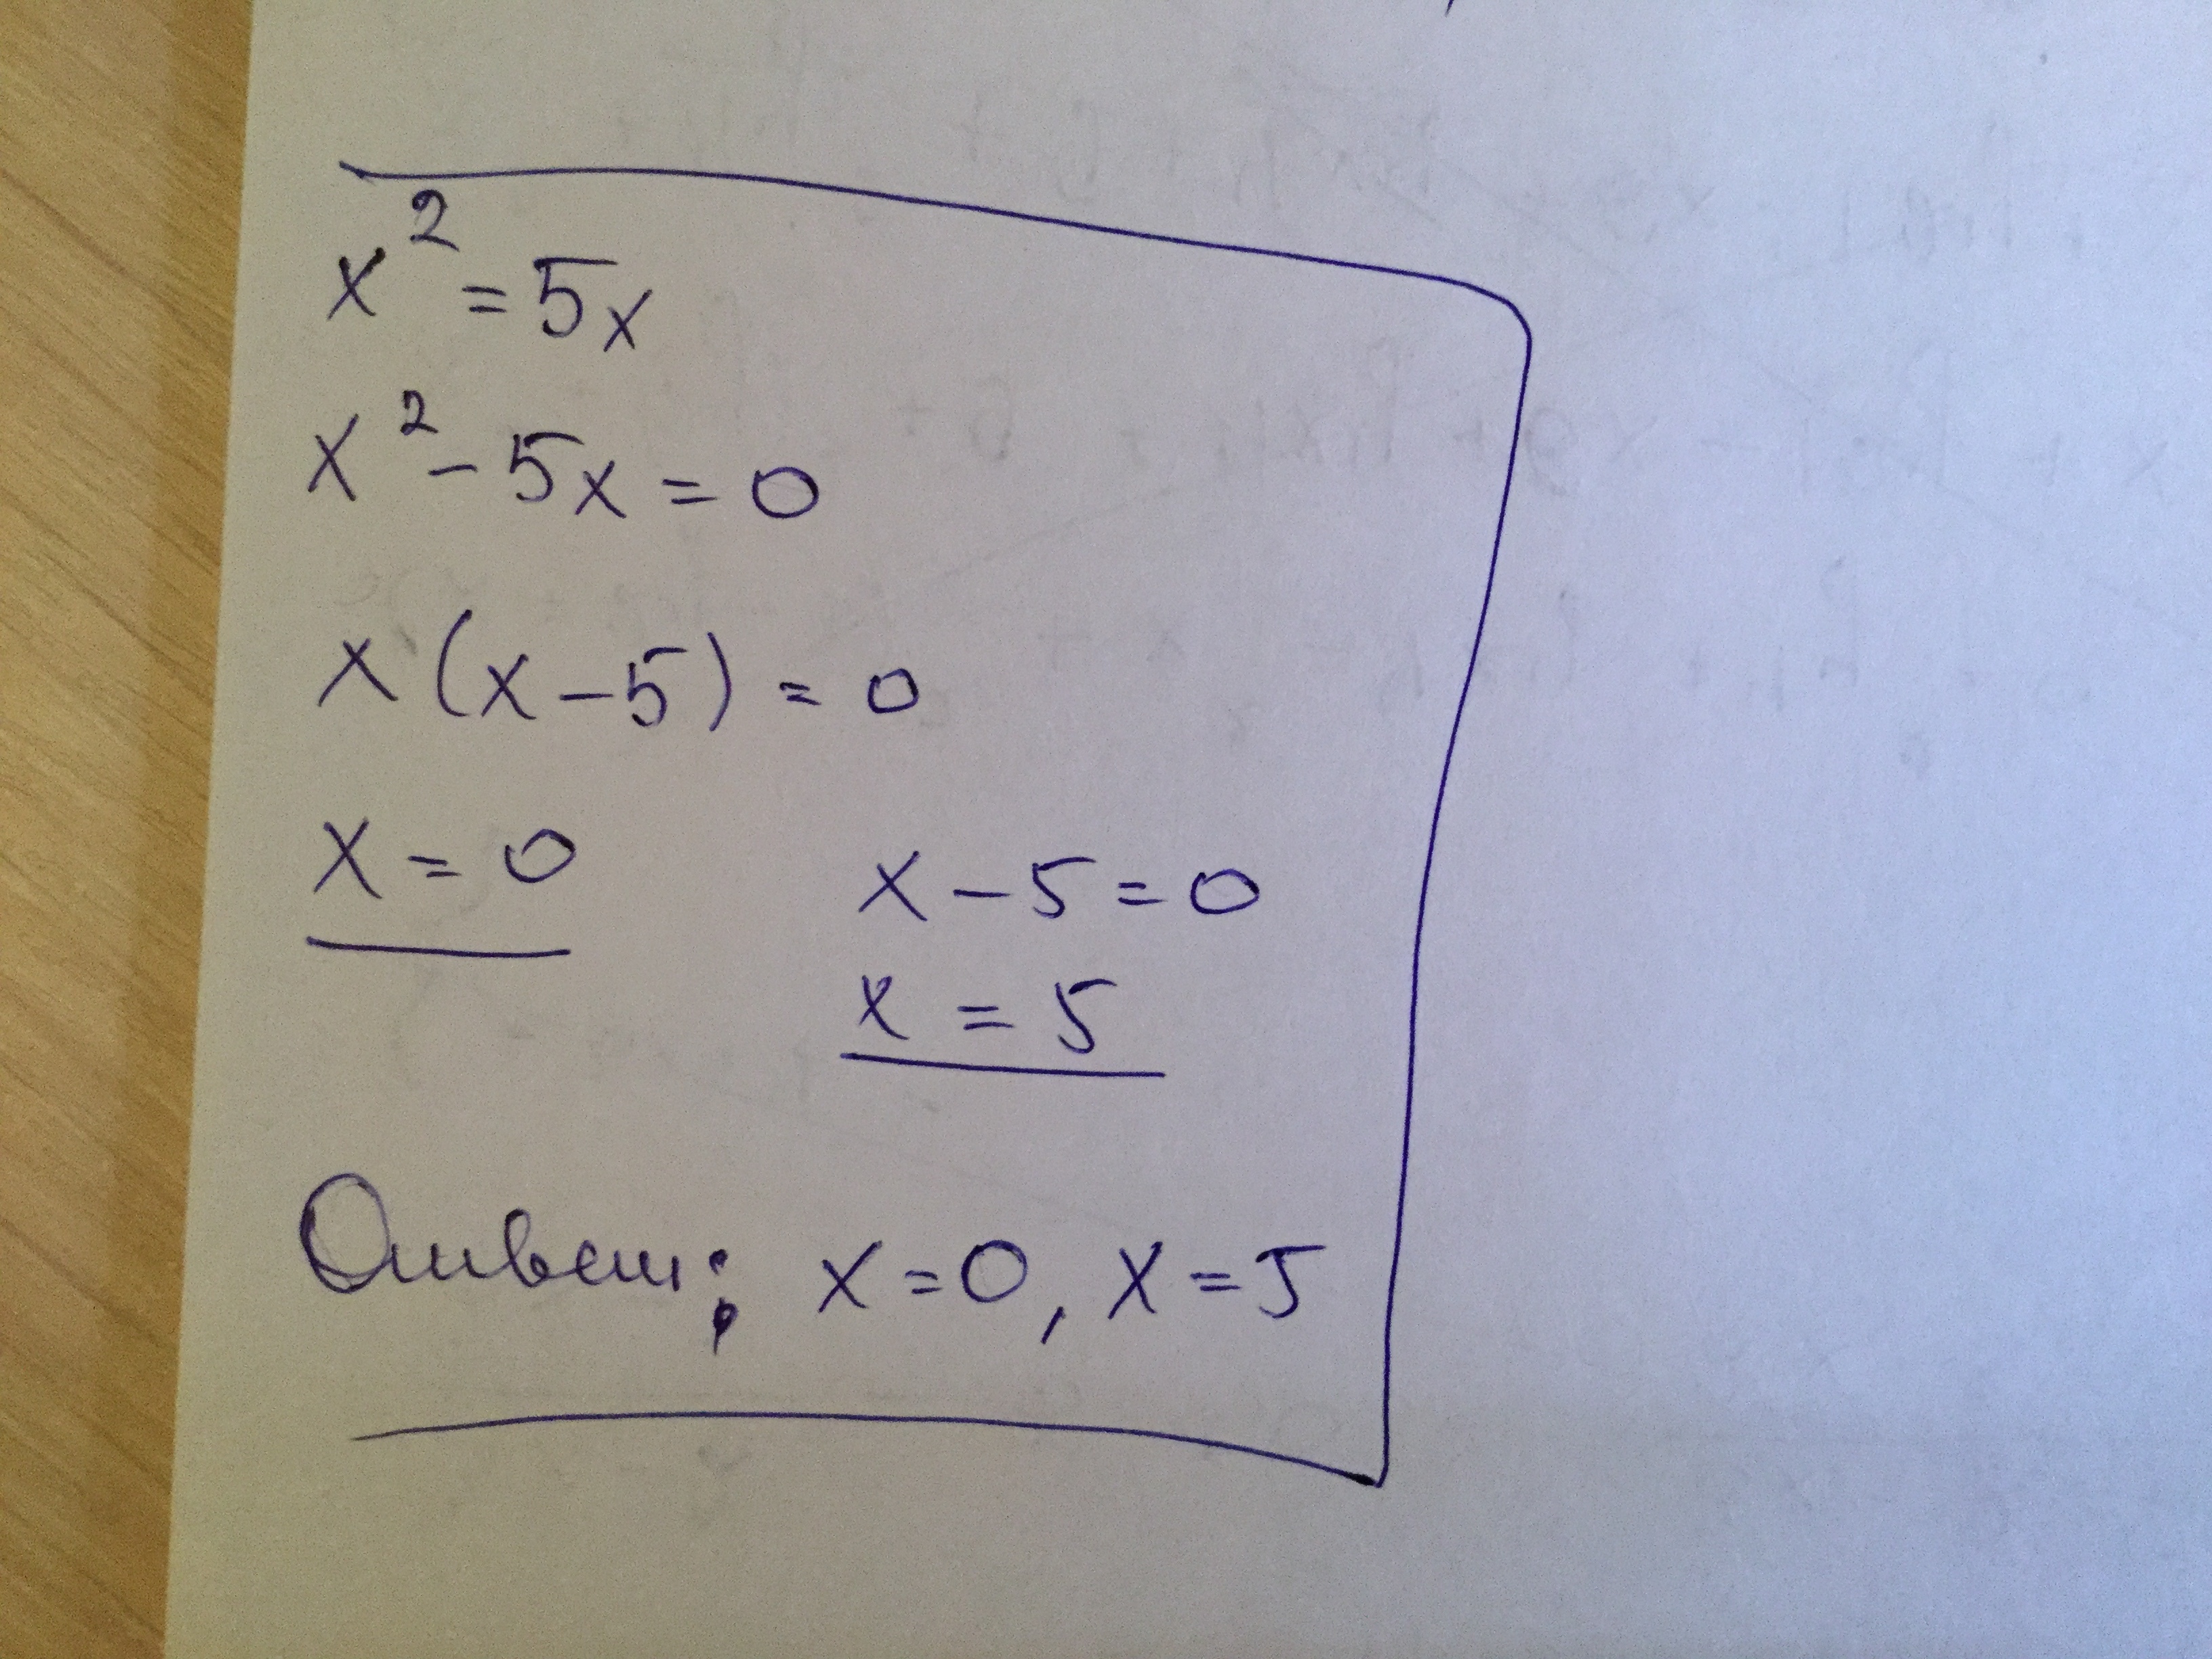 x² = 5x
x² - 5x = 0
x (x - 5) = 0
x = 0 x - 5 = 0
x = 5
Ответ: x = 0, x = 5